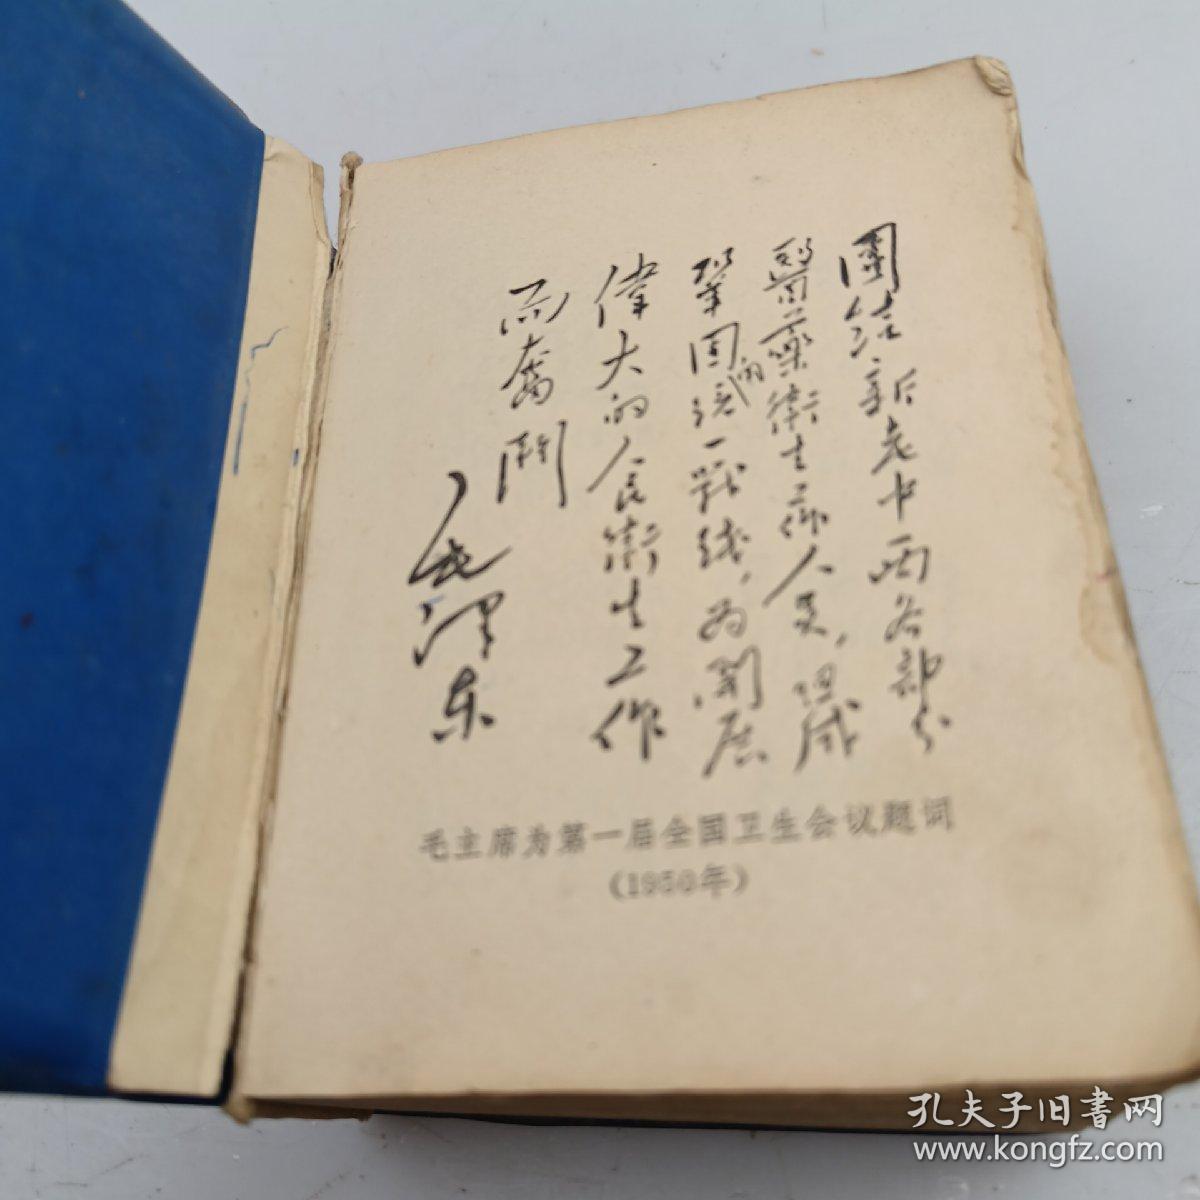 團结新老中西各部分
醫藥衛生工作人員，组成
鞏固的统一戰线，为開展
偉大的人民衛生工作
而奮鬥
毛泽东
毛主席为第一届全国卫生会议题词
（1950年）
孔夫子旧書网
www.kongfz.com